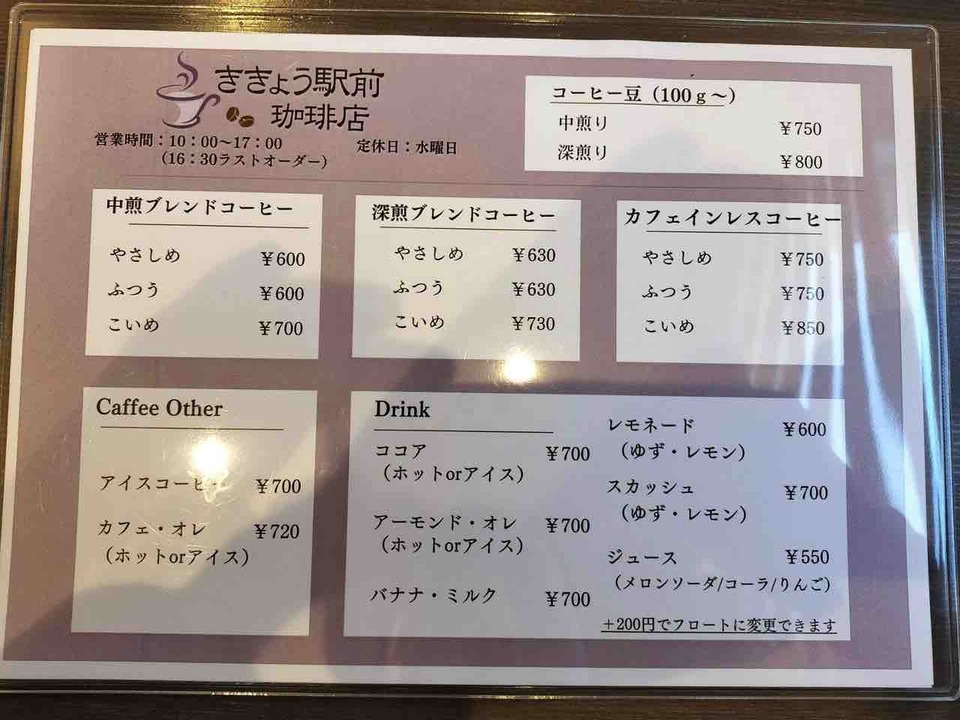 ききょう駅前
珈琲店
営業時間：10：00〜17：00
（16：30ラストオーダー）
定休日：水曜日
コーヒー豆（100ｇ〜）
中煎り ￥750
深煎り ￥800
中煎ブレンドコーヒー
やさしめ ￥600
ふつう ￥600
こいめ ￥700
深煎ブレンドコーヒー
やさしめ ￥630
ふつう ￥630
こいめ ￥730
カフェインレスコーヒー
やさしめ ￥750
ふつう ￥750
こいめ ￥850
Caffee Other
アイスコーヒー ￥700
カフェ・オレ ￥720
（ホットorアイス）
Drink
ココア ￥700
（ホットorアイス）
アーモンド・オレ ￥700
（ホットorアイス）
バナナ・ミルク ￥700
レモネード ￥600
（ゆず・レモン）
スカッシュ ￥700
（ゆず・レモン）
ジュース ￥550
（メロンソーダ/コーラ/りんご）
＋200円でフロートに変更できます